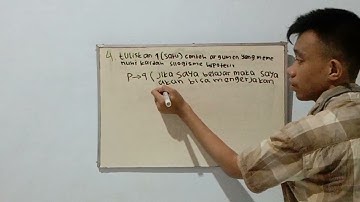 4 tuliskan 1 (satu) contoh argumen yang meme
nuhi kaidah silogisme hipotesis
P→q (Jika saya belajar maka saya
akan bisa mengerjakan